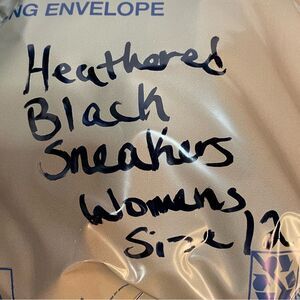 NG ENVELOPE
Heathered
Black
Sneakers
Womens
Size 12